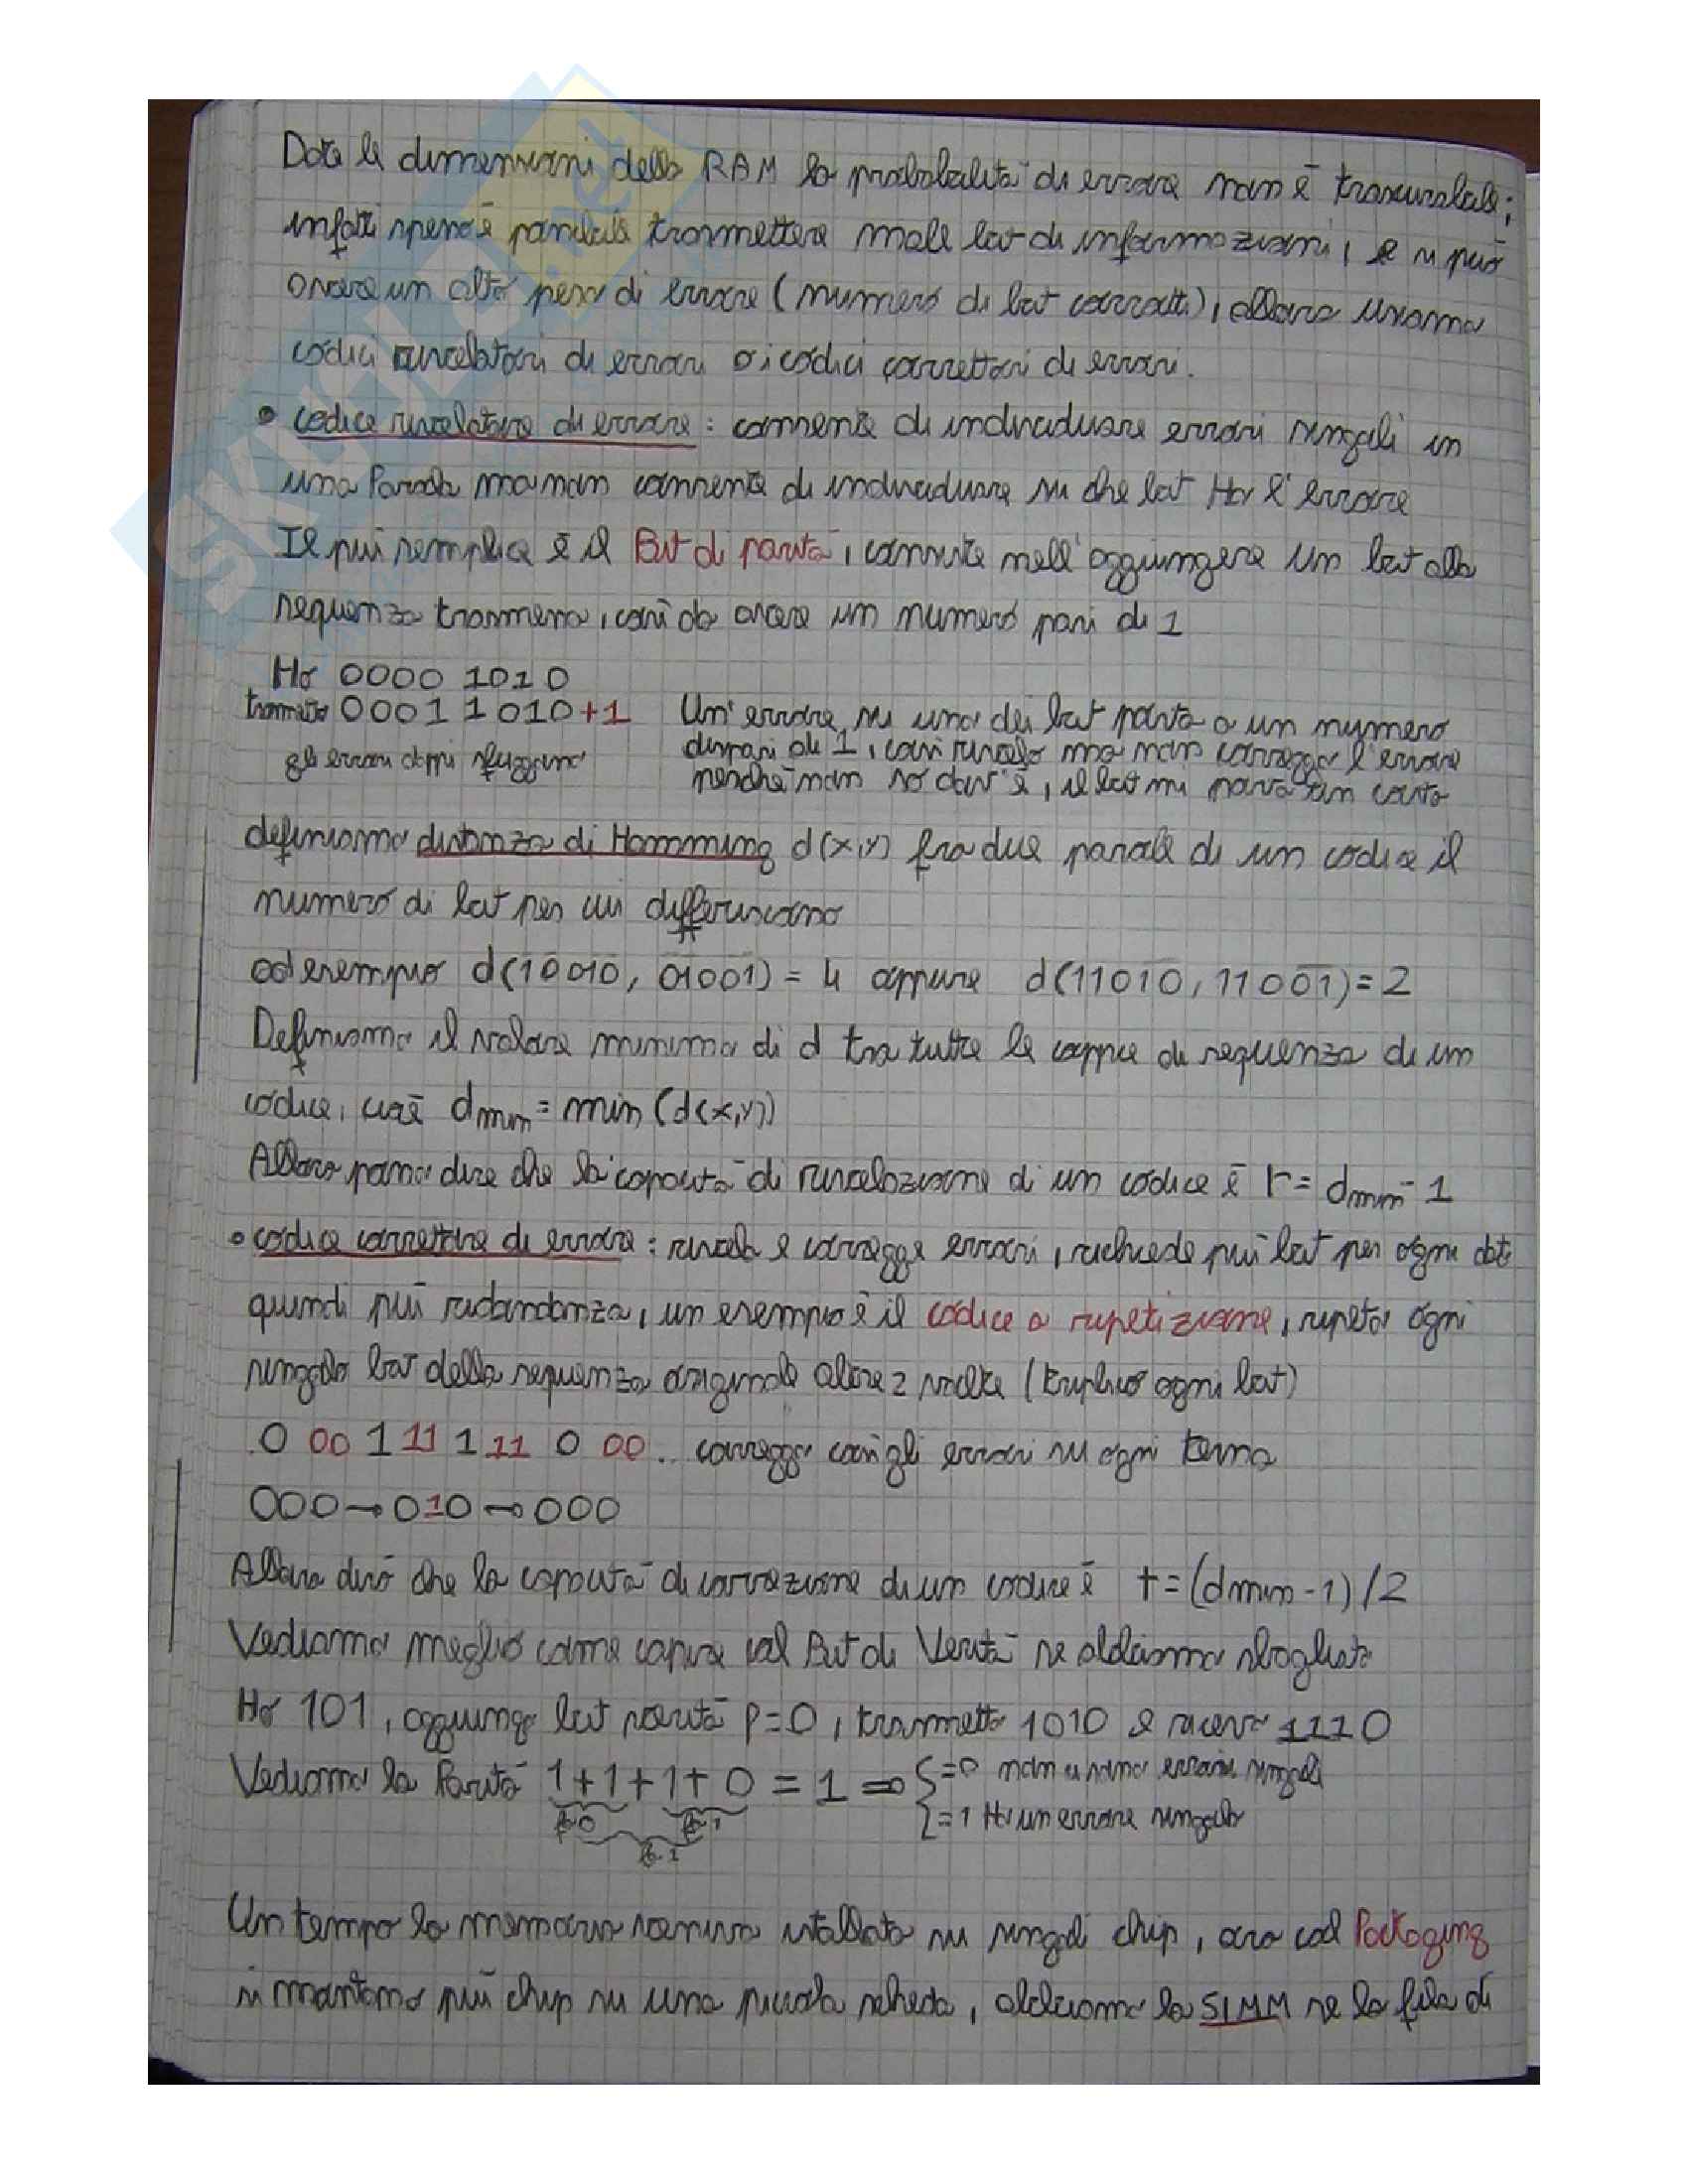 Date le dimensioni della RAM la probabilità di errore non è trascurabile;
infatti spesso è possibile trasmettere male bit di informazioni, e si può
avere un alto peso di errore (numero di bit corrotti), allora usiamo
codici rivelatori di errori o i codici correttori di errori.
• codice rivelatore di errore: consente di individuare errori singoli in
una Parola ma non consente di individuare su che bit Ho l'errore
Il più semplice è il Bit di parità, consiste nell'aggiungere un bit alla
sequenza trasmessa, così da avere un numero pari di 1
Ho 0000 1010
trasmetto 00011010+1 Un errore su uno dei bit porta a un numero
gli errori doppi sfuggono dispari di 1, così rivelo ma non correggo l'errore
perché non so dov'è, il bit mi porta tan conto
definiamo distanza di Hamming d(x,y) fra due parole di un codice il
numero di bit per cui differiscono
ad esempio d(10010, 01001) = 4 oppure d(11010, 11001) = 2
Definiamo il valore minimo di d tra tutte le coppie di sequenza di un
codice, cioè dmin = min (d(x,y))
Allora posso dire che la capacità di rivelazione di un codice è r = dmin - 1
• codice correttore di errore: rivela e corregge errori, richiede più bit per ogni dato
quindi più ridondanza, un esempio è il codice a ripetizione, ripeto ogni
singolo bit della sequenza originale altre 2 volte (triplico ogni bit)
0 00 1 11 1 11 0 00 .. correggo così gli errori su ogni terna
000→010→000
Allora dirò che la capacità di correzione di un codice è t = (dmin - 1)/2
Vediamo meglio come capire col Bit di Verità se abbiamo sbagliato
Ho 101, aggiungo bit parità p=0, trasmetto 1010 e ricevo 1110
Vediamo la Parità 1+1+1+0 = 1 ⇒ { =0 non ci sono errori singoli
=1 Ho un errore singolo
fa 0 fa 1
fa 1
Un tempo la memoria veniva istallata su singoli chip, ora col Packaging
si montano più chip su una piccola scheda, abbiamo la SIMM se la fila di